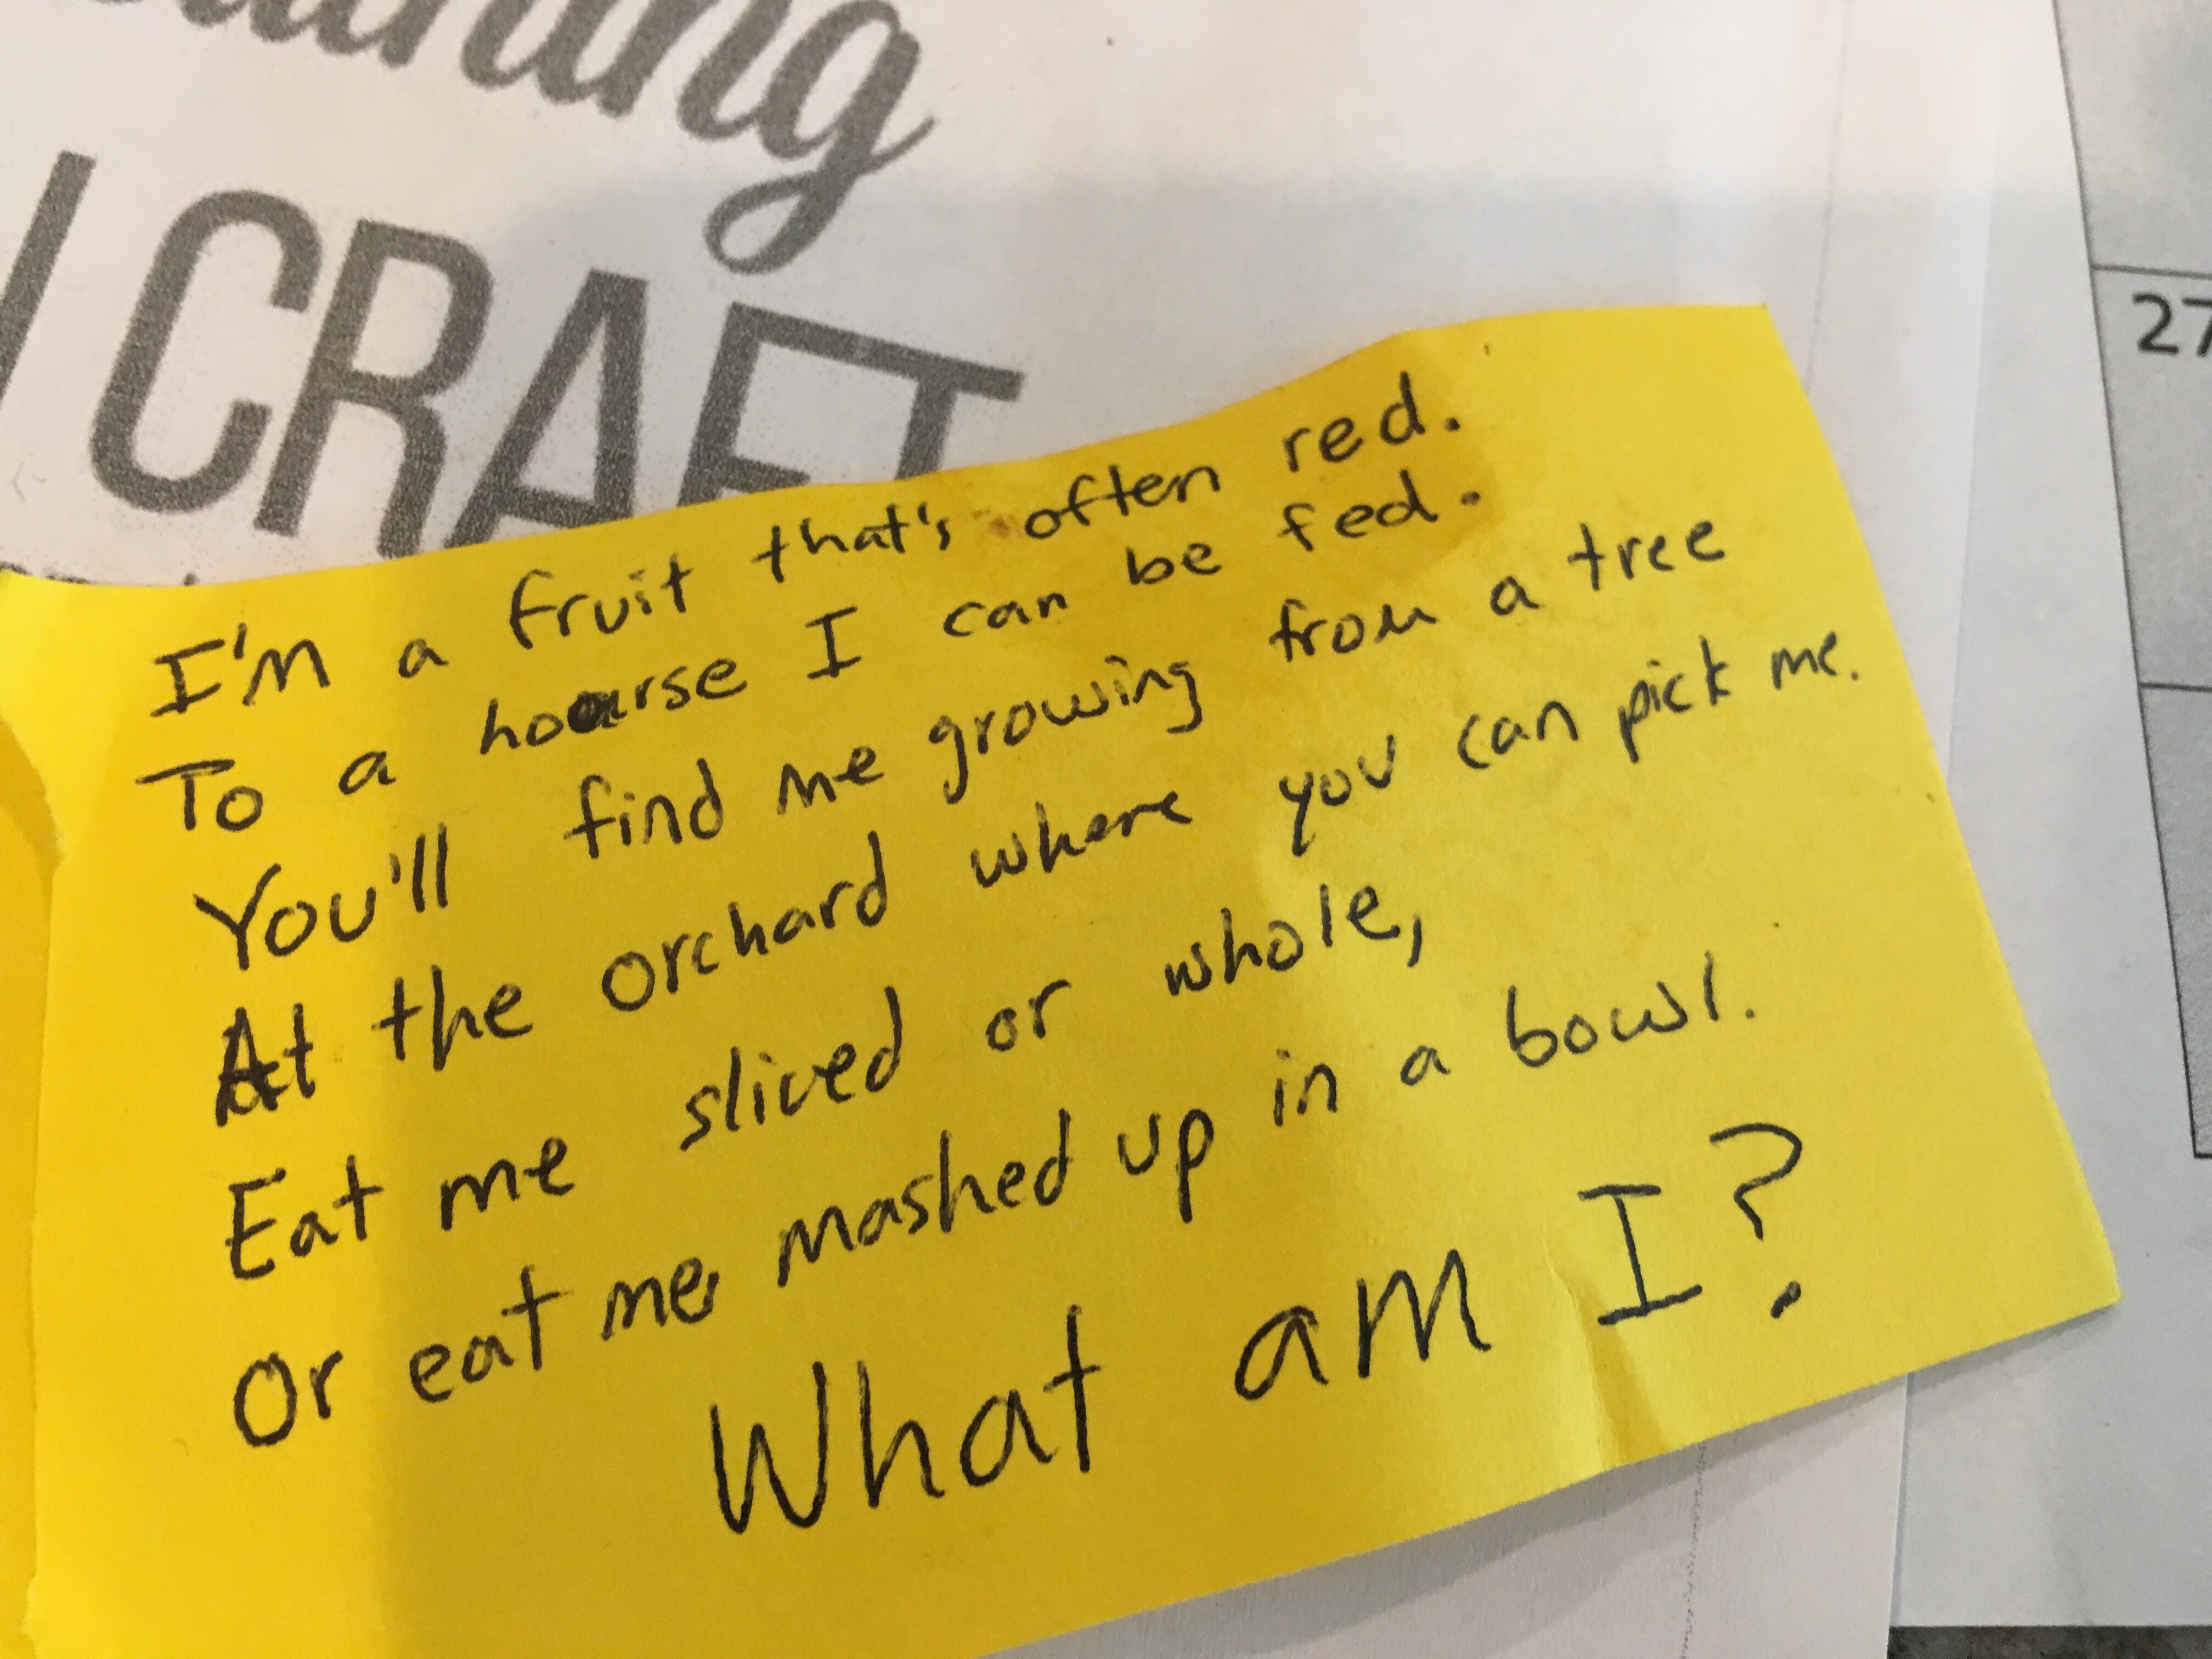 CRAFT
27
I'm a fruit that's often red.
To a hoarse I can be fed.
You'll find me growing from a tree
At the orchard where you can pick me.
Eat me sliced or whole,
Or eat me mashed up in a bowl.
What am I?